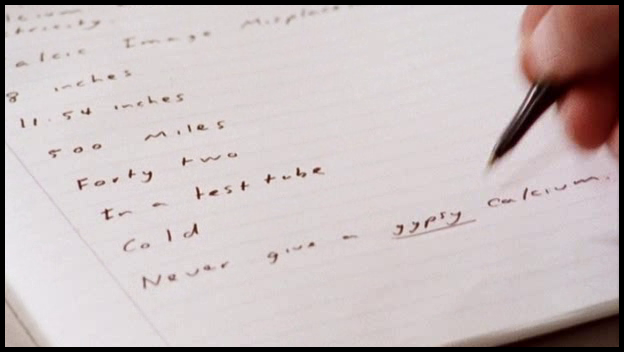 tricity.
Image
8 inches
11.54 inches
500 Miles
Forty two
In a test tube
Cold
Never give a gypsy calcium.